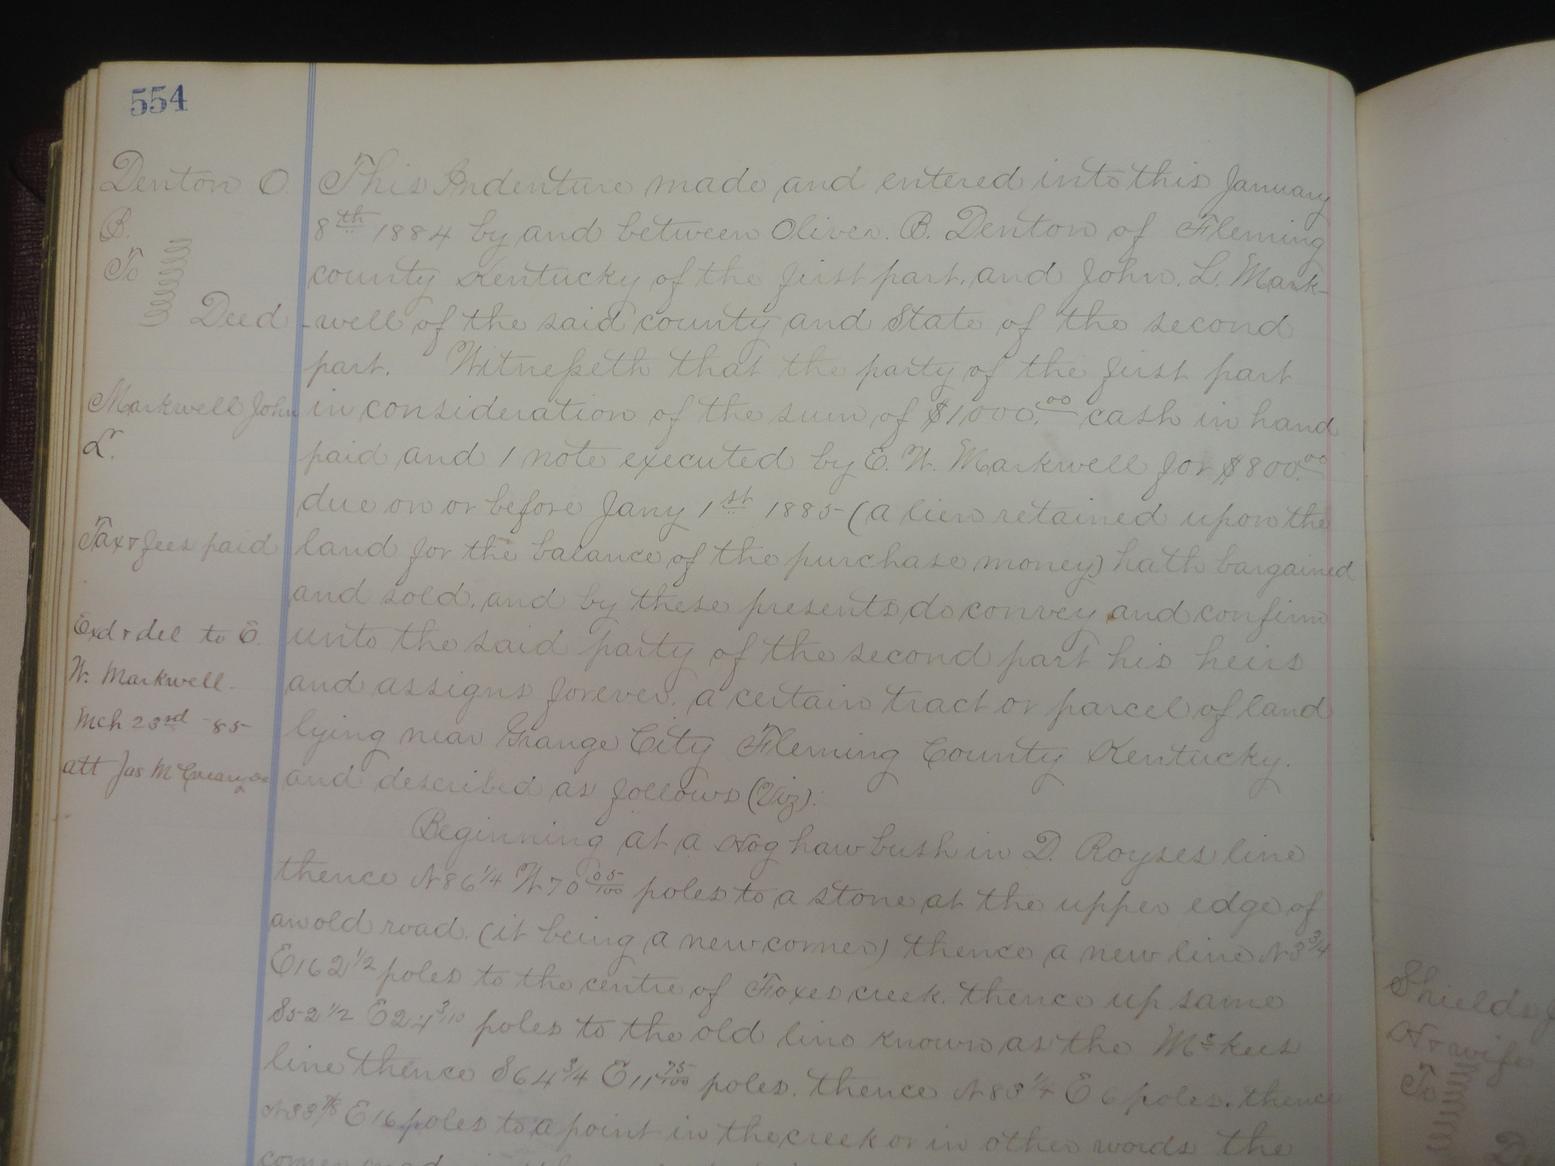 554
Denton O.
B.
To
Deed
Markwell John
L.
Tax & fees paid
Exd & del to E.
W. Markwell.
Mch 23rd -85-
att Jas McGreary
This Indenture made and entered into this January
8th 1884 by and between Oliver. B. Denton of Fleming
county Kentucky of the first part, and John. L. Mark-
-well of the said county and State of the second
part. Witnesseth that the party of the first part
in consideration of the sum of $1000.00 cash in hand
paid and 1 note executed by E. W. Markwell for $800.00
due on or before Jany 1st 1885 (a lien retained upon the
land for the balance of the purchase money) hath bargained
and sold, and by these presents do convey and confirm
unto the said party of the second part his heirs
and assigns forever, a certain tract or parcel of land
lying near Grange City Fleming County Kentucky.
and described as follows (Viz).
Beginning at a Hog haw bush in D. Royses line
thence N 86 1/4 W 70 05/100 poles to a stone at the upper edge of
an old road. (it being a new corner) thence a new line N 3 3/4
E 162 1/2 poles to the centre of Foxes creek. thence up same
S 52 1/2 E 24 3/10 poles to the old line known as the McKees
line thence S 64 3/4 E 11 75/100 poles. thence N 83 1/4 E 6 poles. thence
N 33 7/8 E 16 poles to a point in the creek or in other words the
Shields
& wife
To